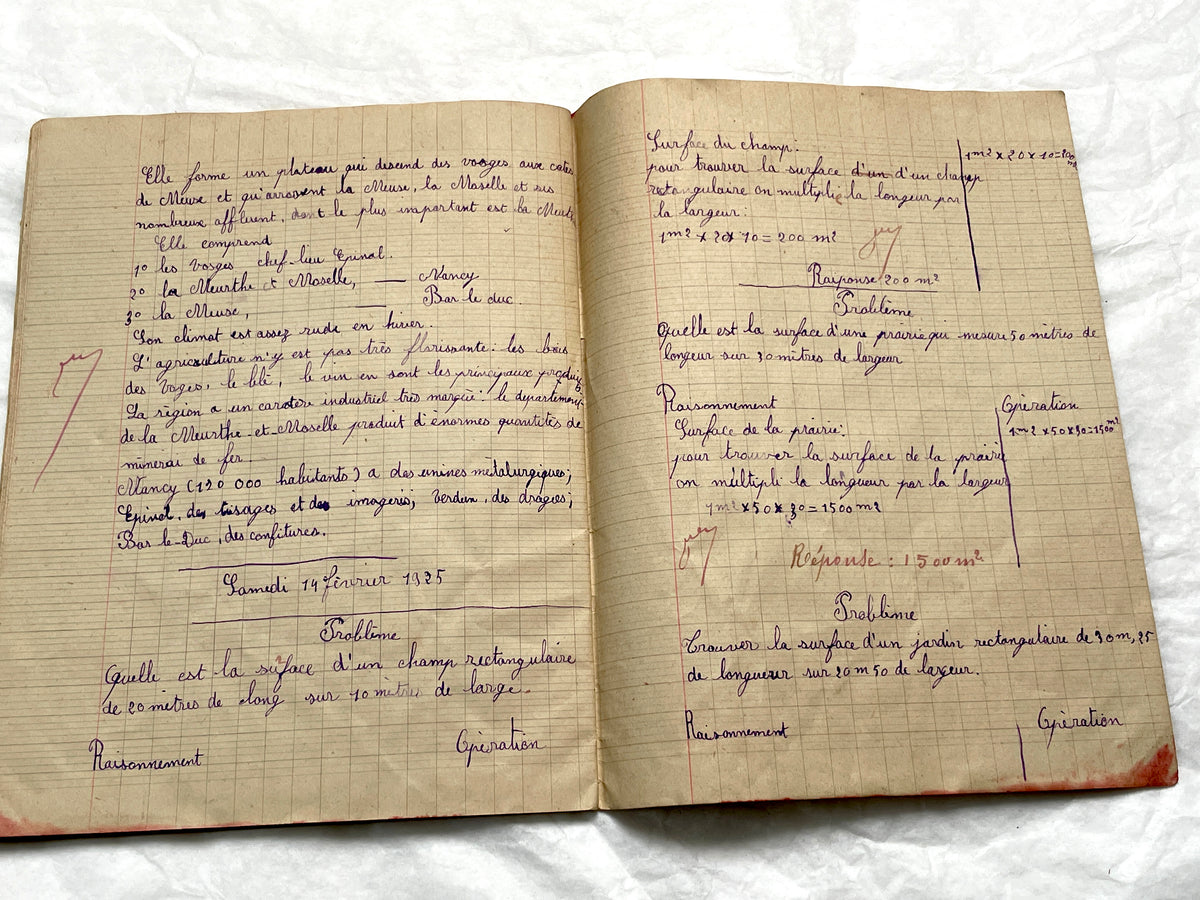 Elle forme un plateau qui descend des vosges aux cotes
de Meuse et qu'arrosent la Meuse, la Moselle et ses
nombreux affluent, dont le plus important est la Meurthe
Elle comprend
1º les Vosges chef-lieu Epinal.
2º la Meurthe et Moselle, — Nancy
3º la Meuse, — Bar le duc.
Son climat est assez rude en hiver.
L'agriculture n'y est pas très florissante: les bois
des Voges, le blé, le vin en sont les principaux produits
La région a un caratère industriel très marqué: le département
de la Meurthe-et-Moselle produit d'énormes quantités de
minerai de fer
Nancy (120 000 habitants) a des usines métalurgiques;
Epinal, des tisages et des imageries, Verdun, des dragées;
Bar le-Duc, des confitures.
Samedi 14 février 1925
Problème
Quelle est la suface d'un champ rectangulaire
de 20 mètres de long sur 10 mètres de large.
Raisonnement Opération
Surface du champ.
1m² x 20 x 10 = 200 m²
pour trouver la surface d'un d'un champ
rectangulaire on multiplie la longeur par
la largeur:
1m² x 20 x 10 = 200 m²
Raiponse 200 m²
Problème
Quelle est la surface d'une prairie qui mesure 50 mètres de
longeur sur 30 mètres de largeur
Raisonnement Opération
Surface de la prairie: 1m² x 50 x 30 = 1500 m²
pour trouver la surface de la prairie
on multipli la longueur par la largeur
1m² x 50 x 30 = 1500 m²
Réponse: 1500 m²
Problème
Trouver la surface d'un jardin rectangulaire de 30m,25
de longueur sur 20m50 de largeur.
Raisonnement Opération